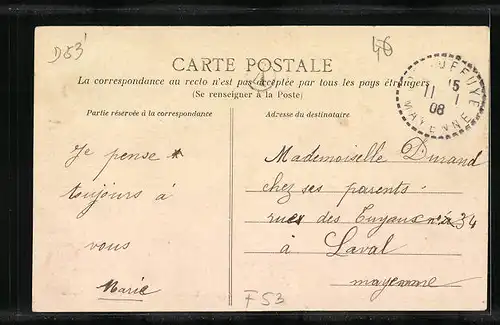 D53
46
CARTE POSTALE
La correspondance au recto n'est pas acceptée par tous les pays étrangers
(Se renseigner à la Poste)
Partie réservée à la correspondance
Adresse du destinataire
15
11 1
08
MAYENNE
Je pense
toujours à
vous
Marie
Mademoiselle Durand
chez ses parents
rues des Tuyaux nº 34
à Laval
mayenne
F53